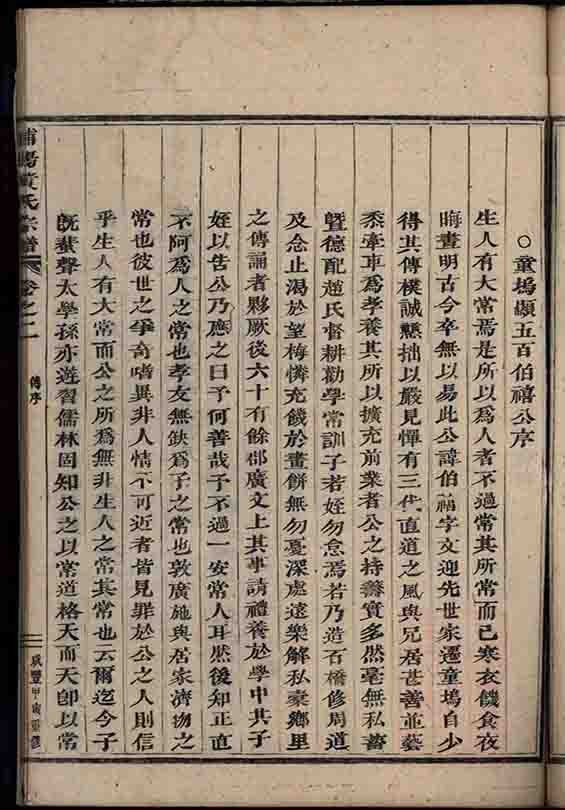 ○童塢顯五百伯禧公序
生人有大常焉是所以為人者不過常其所常而已寒衣饑食夜
晦晝明古今卒無以易此公諱伯禧字文迎先世家遷童塢自少
得其傳樸誠懇拙以嚴見憚有三代直道之風與兄居甚善並藝
黍牽車為孝養其所以擴充前業者公之持籌實多然毫無私蓄
暨德配趙氏督耕勸學常訓子若姪勿怠焉若乃造石橋修周道
及念止渴於望梅憐充饑於畫餅無勿憂深處遠樂解私橐鄉里
之傳誦者夥厥後六十有餘郡廣文上其事請禮養於學中其子
姪以告公乃應之曰予何善哉子不過一安常人耳然後知正直
不阿為人之常也孝友無缺為子之常也敦廣施與居家濟物之
常也彼世之爭奇嗜異非人情不可近者皆見罪於公之人則信
乎生人有大常而公之所為無非生人之常其常也云爾迄今子
既蜚聲太學孫亦遊習儒林固知公之以常道格天而天卽以常
浦陽黃氏宗譜 卷之二 傳序 咸豐甲寅重修